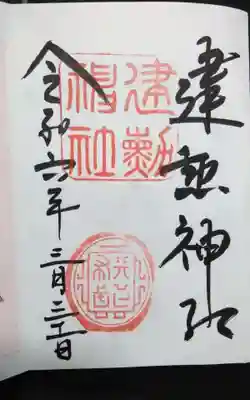 建勲神社
建勲
神社
令和六年 三月三十一日